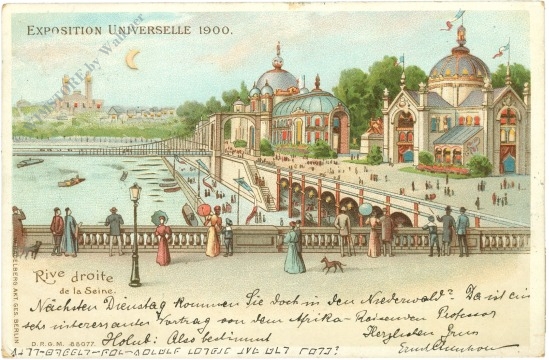 EXPOSITION UNIVERSELLE 1900.
Rive droite
de la Seine.
Nächsten Dienstag kommen Sie doch in den Niederwald? Da ist ein
sehr interessanter Vortrag von dem Afrika-Reisenden Professor
Holub: Also bestimmt
Herzlichen Gruss
D.R.G.M. 88077.